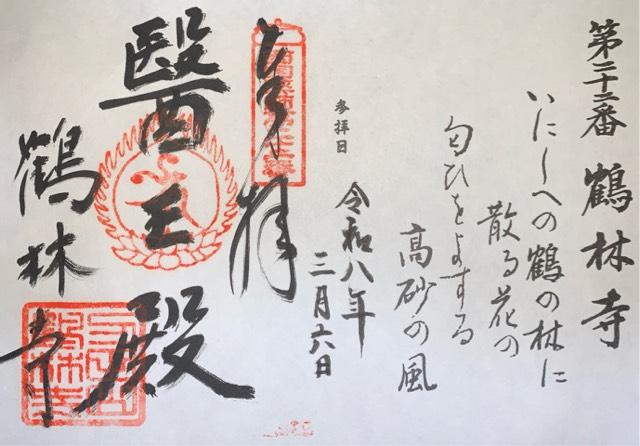 第二十二番 鶴林寺
いにしへの鶴の林に
散る花の
匂ひをよする
高砂の風
参拝日
令和八年
三月六日
奉拝
醫王殿
鶴林寺